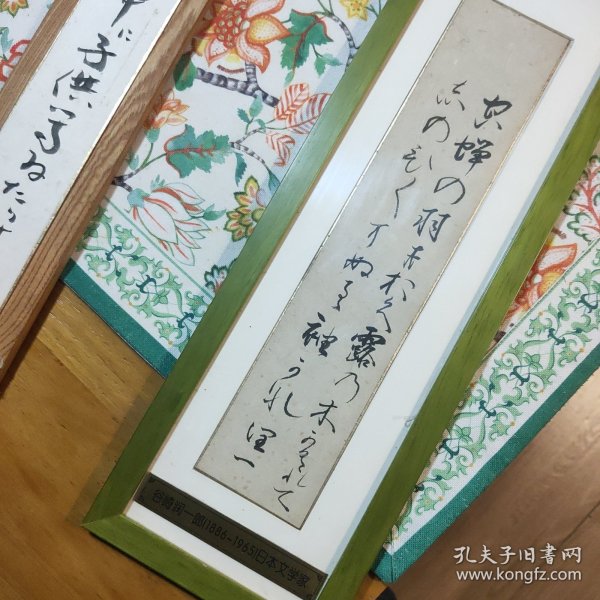 に子供等ねたり
空蝉の羽におく露乃木かくれて
志のひ〱にぬるる袖かな 潤一
谷崎润一郎(1886-1965)日本文学家
孔夫子旧书网
www.kongfz.com